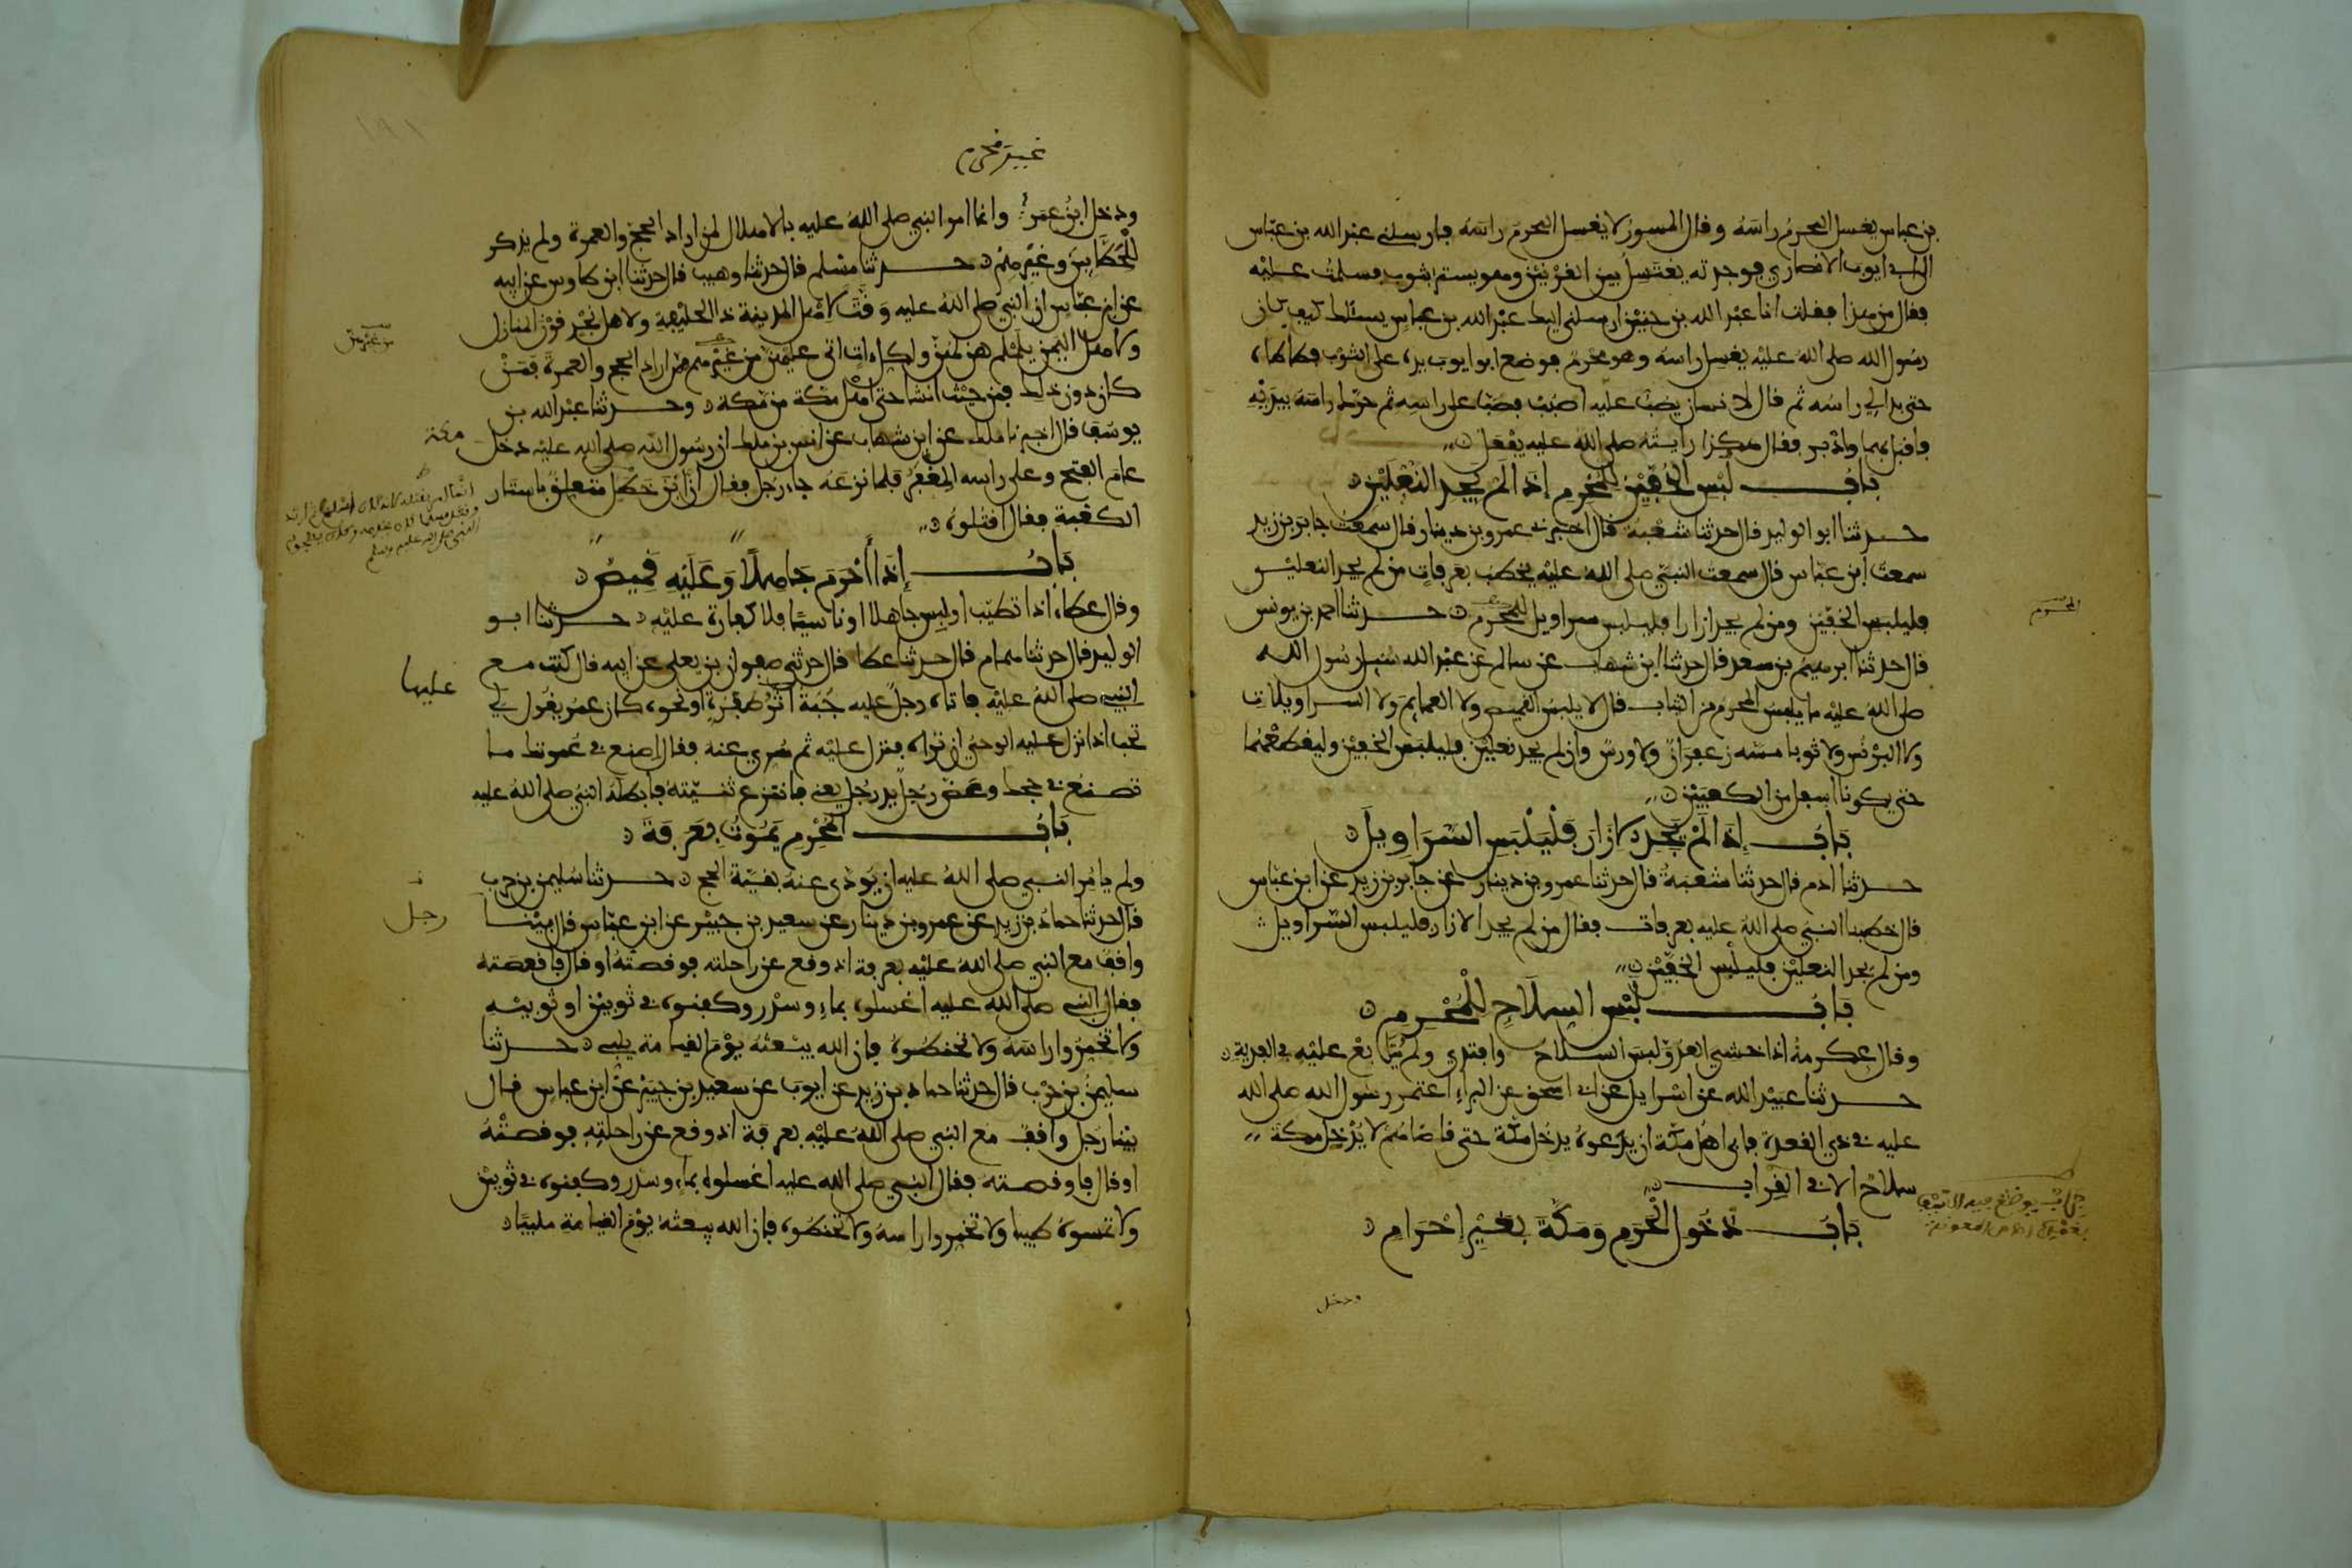 بن عباس يغسل المحرم راسه وقال المسور لا يغسل المحرم راسه فارسلني عبد الله بن عباس
الى ابي ايوب الانصاري فوجدته يغتسل بين القرنين وهو يستر بثوب فسلمت عليه
فقال من هذا فقلت انا عبد الله بن حنين ارسلني اليك عبد الله بن عباس يسئلك كيف كان
رسول الله صلى الله عليه يغسل راسه وهو محرم فوضع ابو ايوب يده على الثوب فطاطاه
حتى بدا لي راسه ثم قال لانسان يصب عليه اصبب فصب على راسه ثم حرك راسه بيديه
فاقبل بهما وادبر فقال هكذا رايته صلى الله عليه يفعل
باب لبس الخفين للمحرم إذا لم يجد النعلين
حدثنا ابو الوليد قال حدثنا شعبة قال اخبرني عمرو بن دينار قال سمعت جابر بن زيد
سمعت ابن عباس قال سمعت النبي صلى الله عليه يخطب بعرفات من لم يجد النعلين
فليلبس الخفين ومن لم يجد ازارا فليلبس سراويل للمحرم حدثنا احمد بن يونس
المحرم
قال حدثنا ابرهيم بن سعد قال حدثنا ابن شهاب عن سالم عن عبد الله سئل رسول الله
صلى الله عليه ما يلبس المحرم من الثياب قال لا يلبس القميص ولا العمايم ولا السراويلات
ولا البرنس ولا ثوبا مسه زعفران ولا ورس وان لم يجد نعلين فليلبس الخفين وليقطعهما
حتى يكونا اسفل من الكعبين
باب إذا لم يجد الازار فليلبس السراويل
حدثنا ادم قال حدثنا شعبة قال حدثنا عمرو بن دينار عن جابر بن زيد عن ابن عباس
قال خطبنا النبي صلى الله عليه بعرفات فقال من لم يجد الازار فليلبس السراويل
ومن لم يجد النعلين فليلبس الخفين
باب لبس السلاح للمحرم
وقال عكرمة اذا خشي العدو لبس السلاح وافتدى ولم يتابع عليه في الفدية
حدثنا عبيد الله عن اسرايل عن ابي اسحق عن البراء اعتمر رسول الله صلى الله
عليه في ذي القعدة فابى اهل مكة ان يدعوه يدخل مكة حتى قاضاهم لا يدخل مكة
سلاح الا في القراب
باب دخول الحرم ومكة بغير إحرام
ودخل
غير محرم
ودخل ابن عمر وانما امر النبي صلى الله عليه بالاهلال لمن اراد الحج والعمرة ولم يذكر
للحطابين وغيرهم حدثنا مسلم قال حدثنا وهيب قال حدثنا ابن طاوس عن ابيه
عن ابن عباس ان النبي صلى الله عليه وقت لاهل المدينة ذا الحليفة ولاهل نجد قرن المنازل
ولاهل اليمن يلملم هن لهن ولكل ات اتى عليهن من غيرهم ممن اراد الحج والعمرة فمن
من غيرهن
كان دون ذلك فمن حيث انشا حتى اهل مكة من مكة وحدثنا عبد الله بن
يوسف قال اخبرنا ملك عن ابن شهاب عن انس بن ملك ان رسول الله صلى الله عليه دخل
مكة
عام الفتح وعلى راسه المغفر فلما نزعه جاء رجل فقال ان ابن خطل متعلق باستار
الكعبة فقال اقتلوه
باب إذا أحرم جاهلا وعليه قميص
وقال عطاء اذا تطيب او لبس جاهلا او ناسيا فلا كفارة عليه حدثنا ابو
الوليد قال حدثنا همام قال حدثنا عطا قال حدثني صفوان بن يعلى عن ابيه قال كنت مع
النبي صلى الله عليه فاتاه رجل عليه جبة اثر صفرة او نحوه كان عمر يقول لي
عليها
تحب اذا نزل عليه الوحي ان تراه فنزل عليه ثم سري عنه فقال اصنع في عمرتك ما
تصنع في حجك وعض رجل يد رجل يعني فانتزع ثنيته فابطله النبي صلى الله عليه
باب المحرم يموت بعرفة
ولم يامر النبي صلى الله عليه ان يؤدى عنه بقية الحج حدثنا سليمن بن حرب
قال حدثنا حماد بن زيد عن عمرو بن دينار عن سعيد بن جبير عن ابن عباس قال بينا
رجل
واقف مع النبي صلى الله عليه بعرفة اذ وقع عن راحلته فوقصته او قال فاقعصته
فقال النبي صلى الله عليه اغسلوه بماء وسدر وكفنوه في ثوبين او ثوبيه
ولا تخمروا راسه ولا تحنطوه فان الله يبعثه يوم القيامة يلبي حدثنا
سليمن بن حرب قال حدثنا حماد بن زيد عن ايوب عن سعيد بن جبير عن ابن عباس قال
بينا رجل واقف مع النبي صلى الله عليه بعرفة اذ وقع عن راحلته فوقصته
او قال فاوقصته فقال النبي صلى الله عليه اغسلوه بماء وسدر وكفنوه في ثوبين
ولا تمسوه طيبا ولا تخمروا راسه ولا تحنطوه فان الله يبعثه يوم القيامة ملبيا